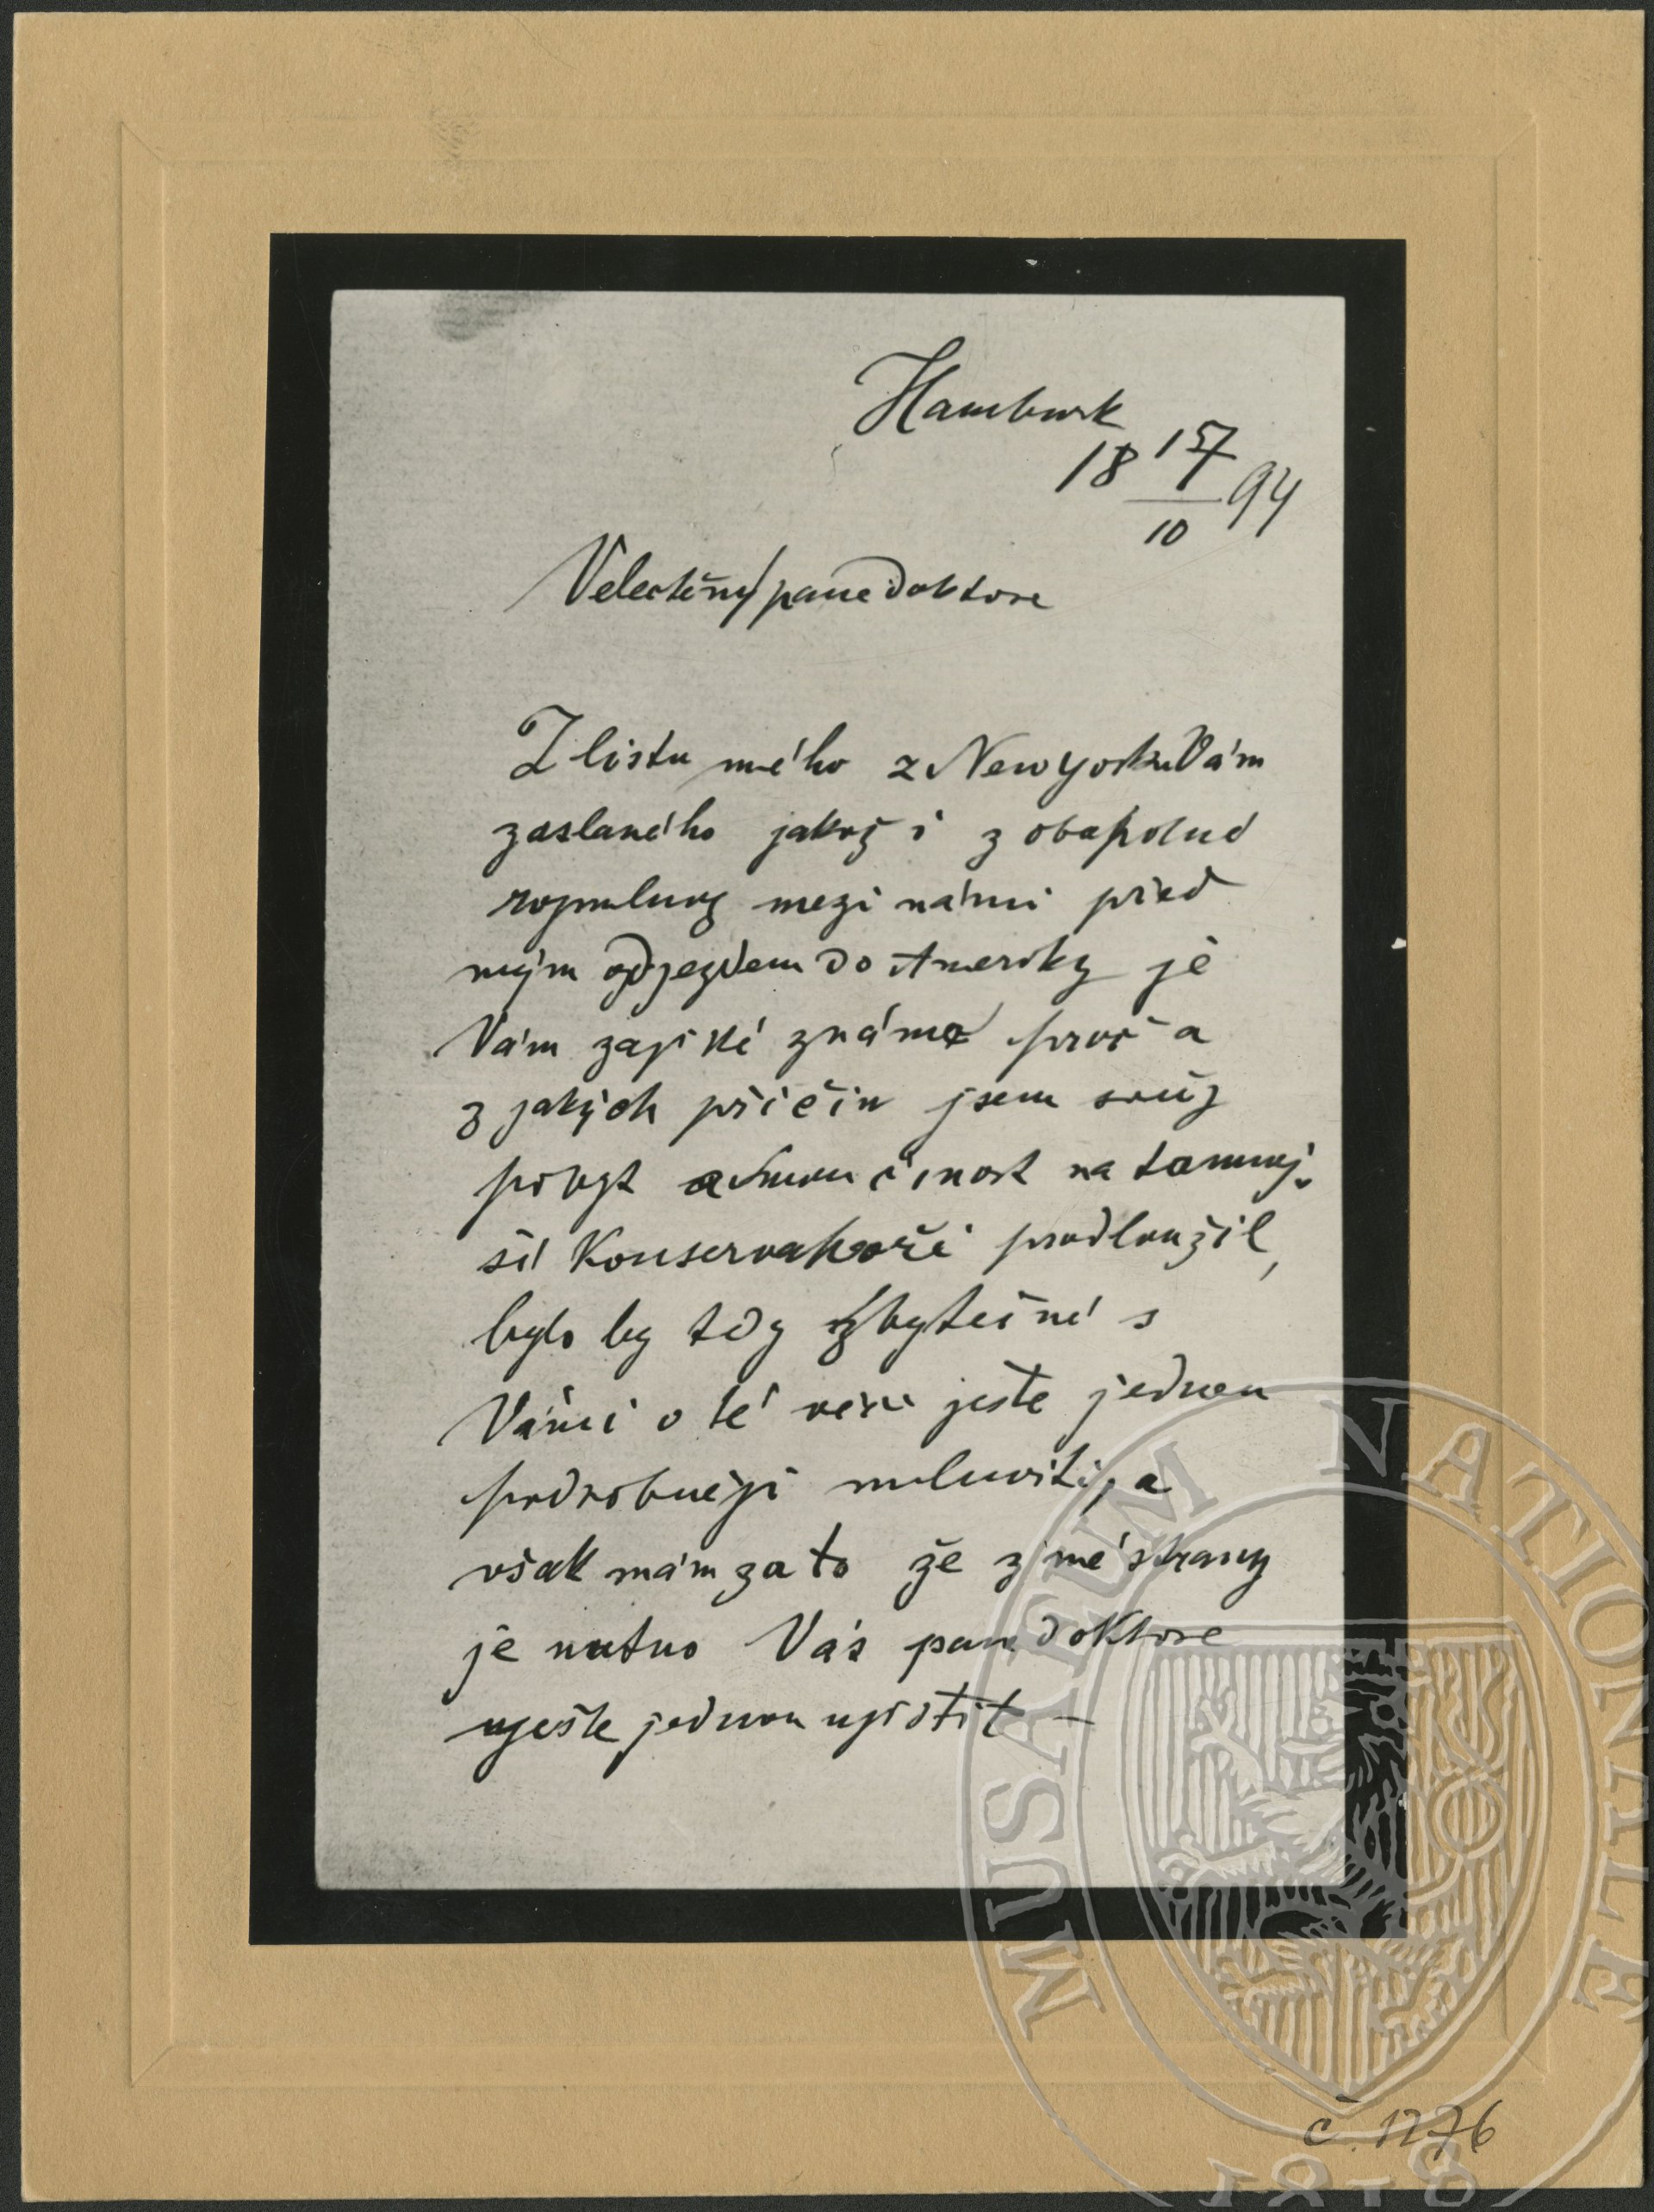 Hamburk
18 17/10 94
Velectěný pane doktore
Z listu mého z New yorku Vám
zaslaného jakož i z obapolné
rozmluvy mezi námi před
mým odjezdem do Ameriky je
Vám zajisté známo proč a
z jakých příčin jsem svůj
pobyt a činost na tamnej-
ší Konservatoři prodloužil,
bylo by tdy zbytečné s
Vámi o té věci ješte jednou
podrobněji mluviti, a
však mám za to že z mé strany
je nutno Vás pane doktore
ješte jednou ujistit –
č. 1276
MUSAEUM NATIONALE
1818